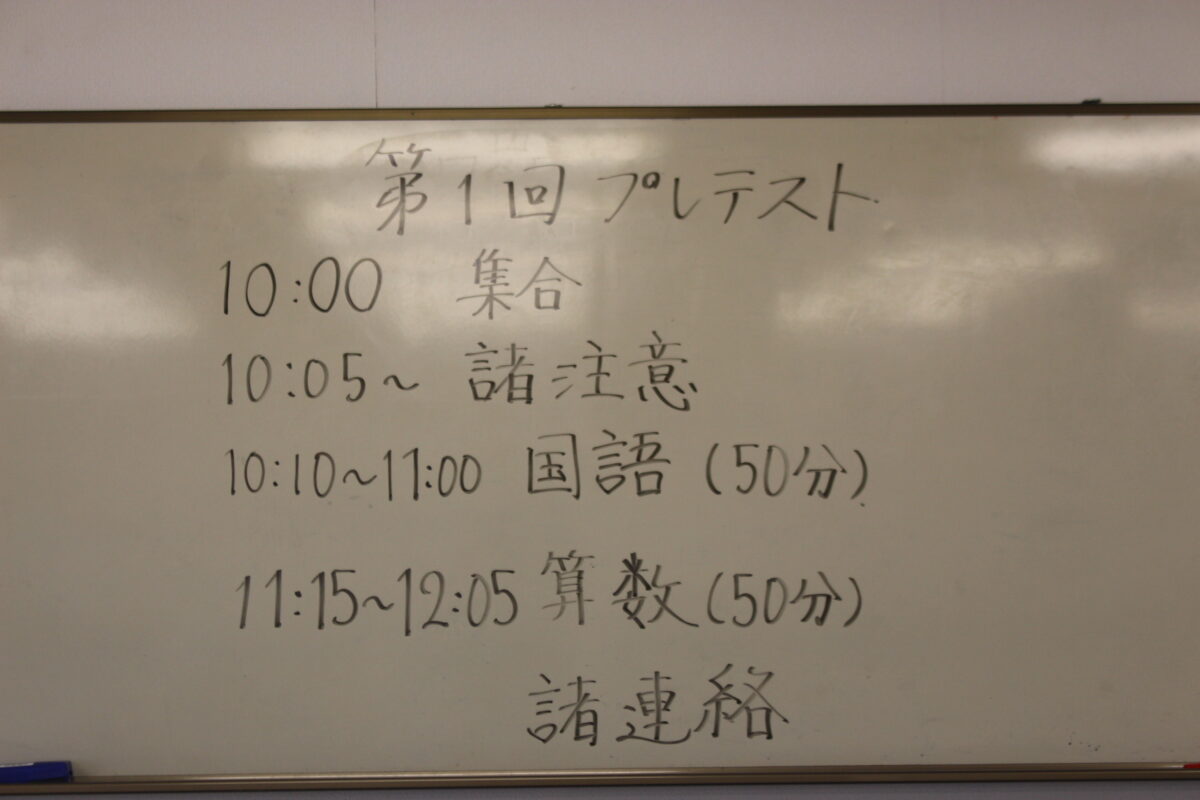 第1回 プレテスト
10:00 集合
10:05~ 諸注意
10:10~11:00 国語 (50分)
11:15~12:05 算数 (50分)
諸連絡